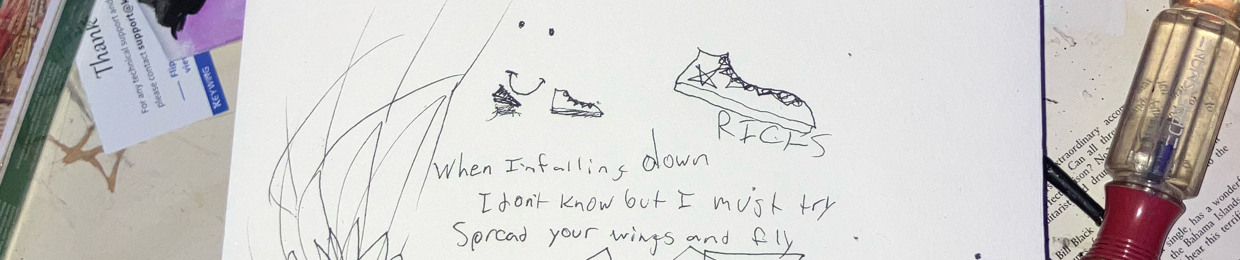 Thank
For any technical support and
please contact support@k
Flip
KEYWING
RICKS
When I'm falling down
I don't know but I might try
Spread your wings and fly
extraordinary acco
Can all thre
son? No
Bill Black
single
has a wonderf
the Bahama Islands
hear this terrifi
to the